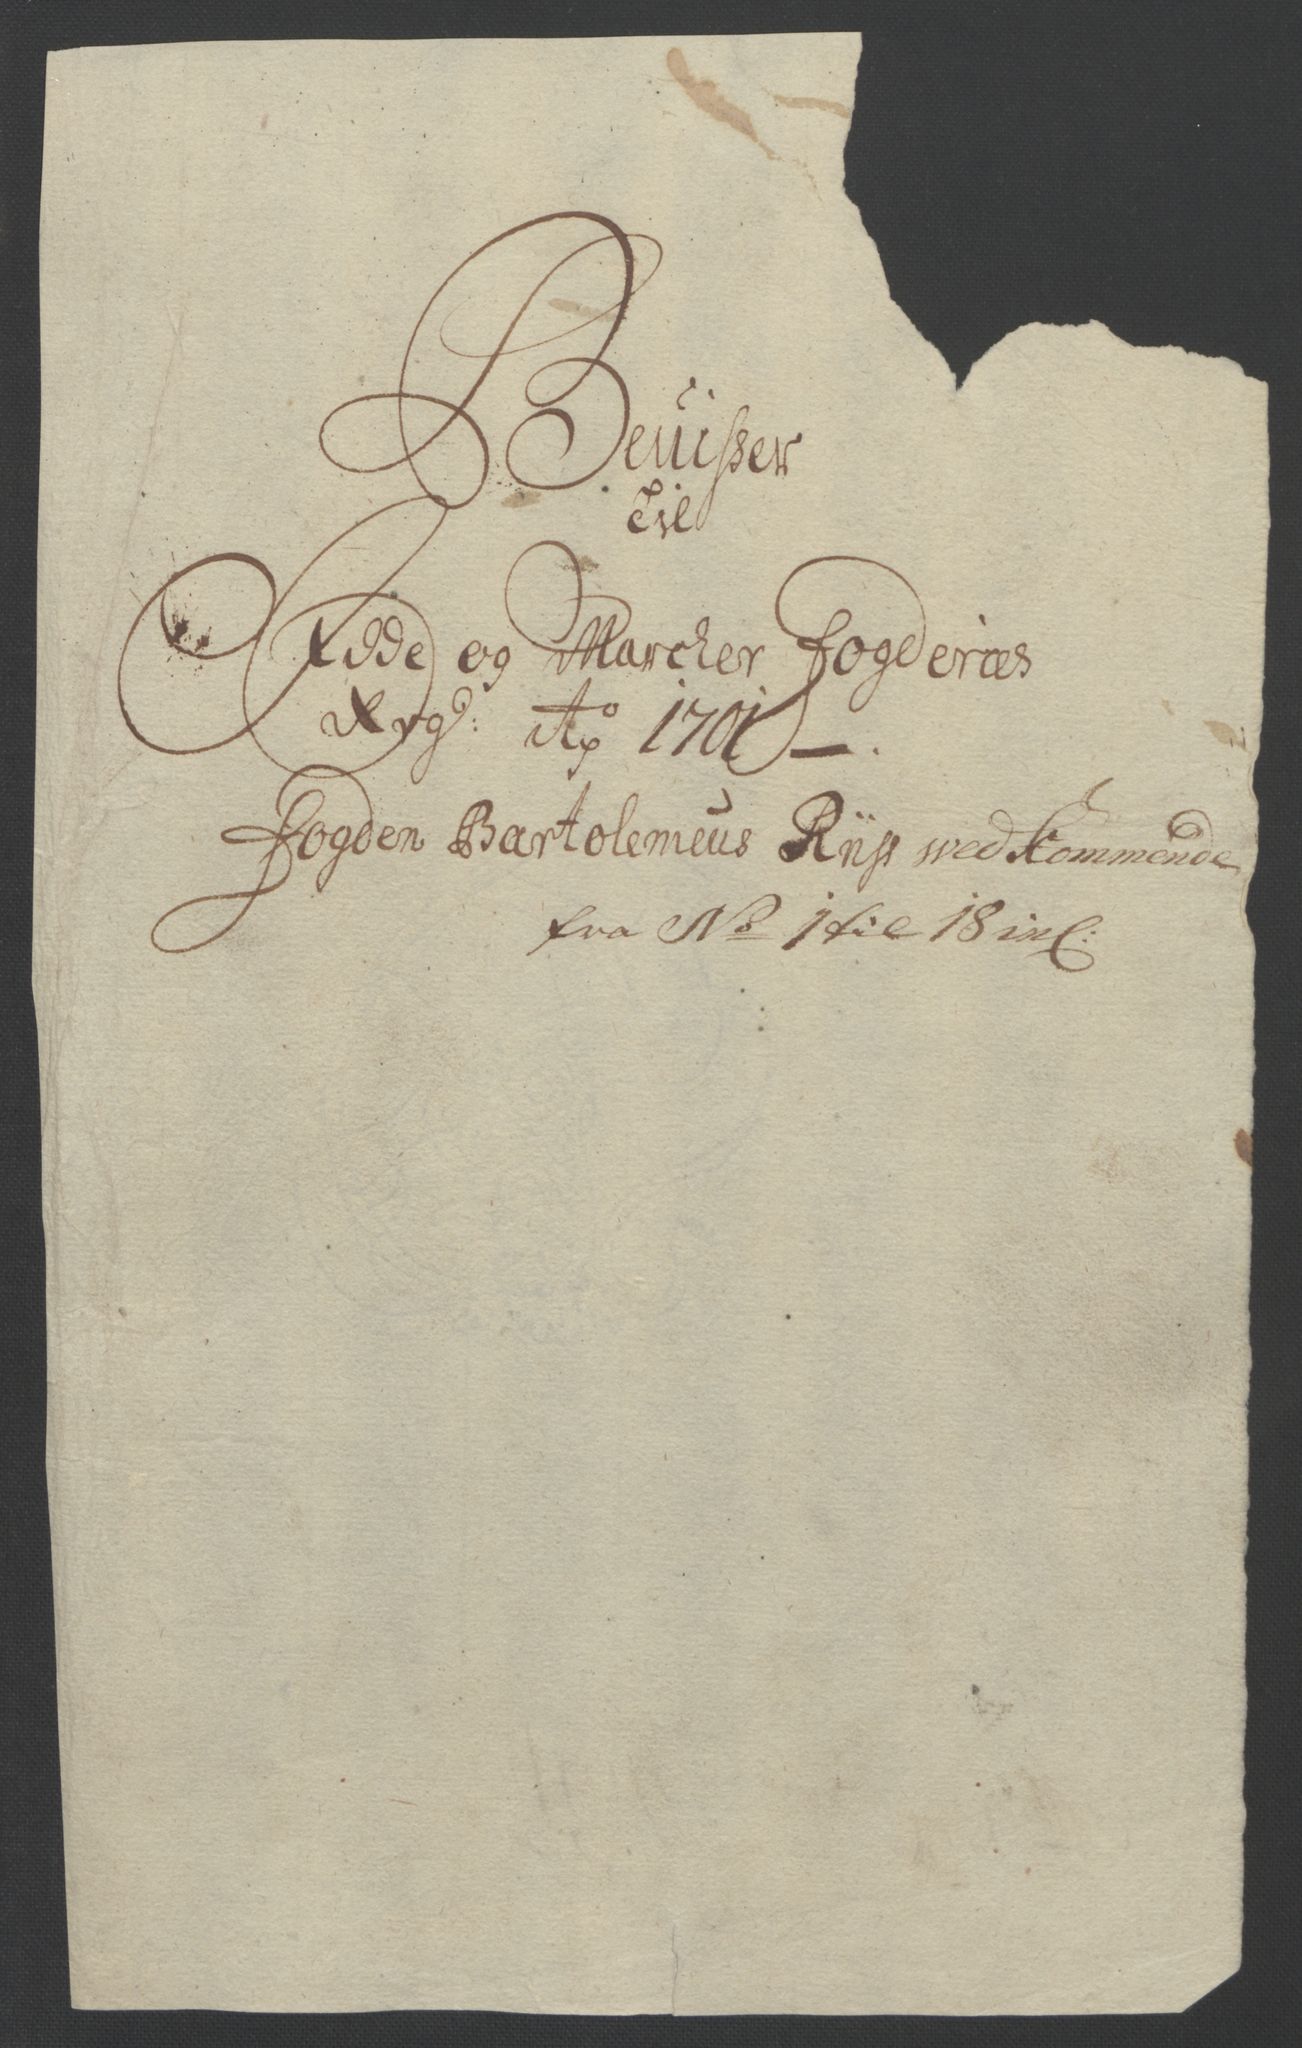 Beviisser
Til
Idde og Marcker Fogderies
Regs: Ao 1701 —.
Fogden Bartolemeus Riise wedkommende
fra No 1 til 18 incl: